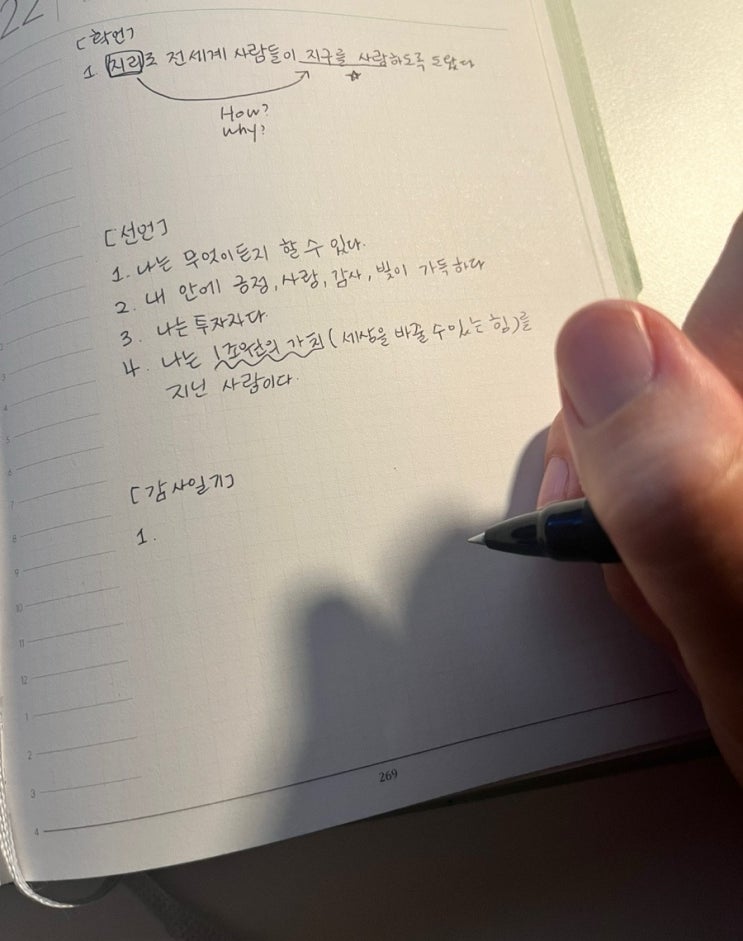 22
[확언]
1. 지리로 전세계 사람들이 지구를 사랑하도록 도왔다
How?
why?
[선언]
1. 나는 무엇이든지 할 수 있다.
2. 내 안에 긍정, 사랑, 감사, 빛이 가득하다
3. 나는 투자자다.
4. 나는 1조원의 가치 (세상을 바꿀 수 있는 힘)를
지닌 사람이다.
[감사일기]
1.
2
3
4
5
6
7
8
9
10
11
12
1
2
3
4
269